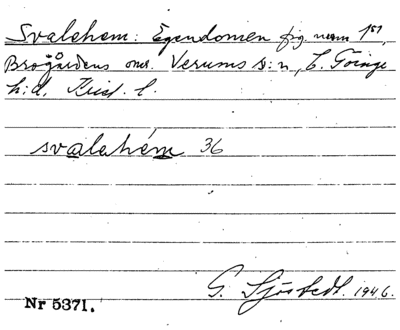 Svalehem: Egendomen fig. namn 1⁵¹,
Brogårdens omr. Verums s:n, V. Göinge
h:d, Krist. l.
svalehém 36
G. Sjöstedt. 1946.
Nr 5371.